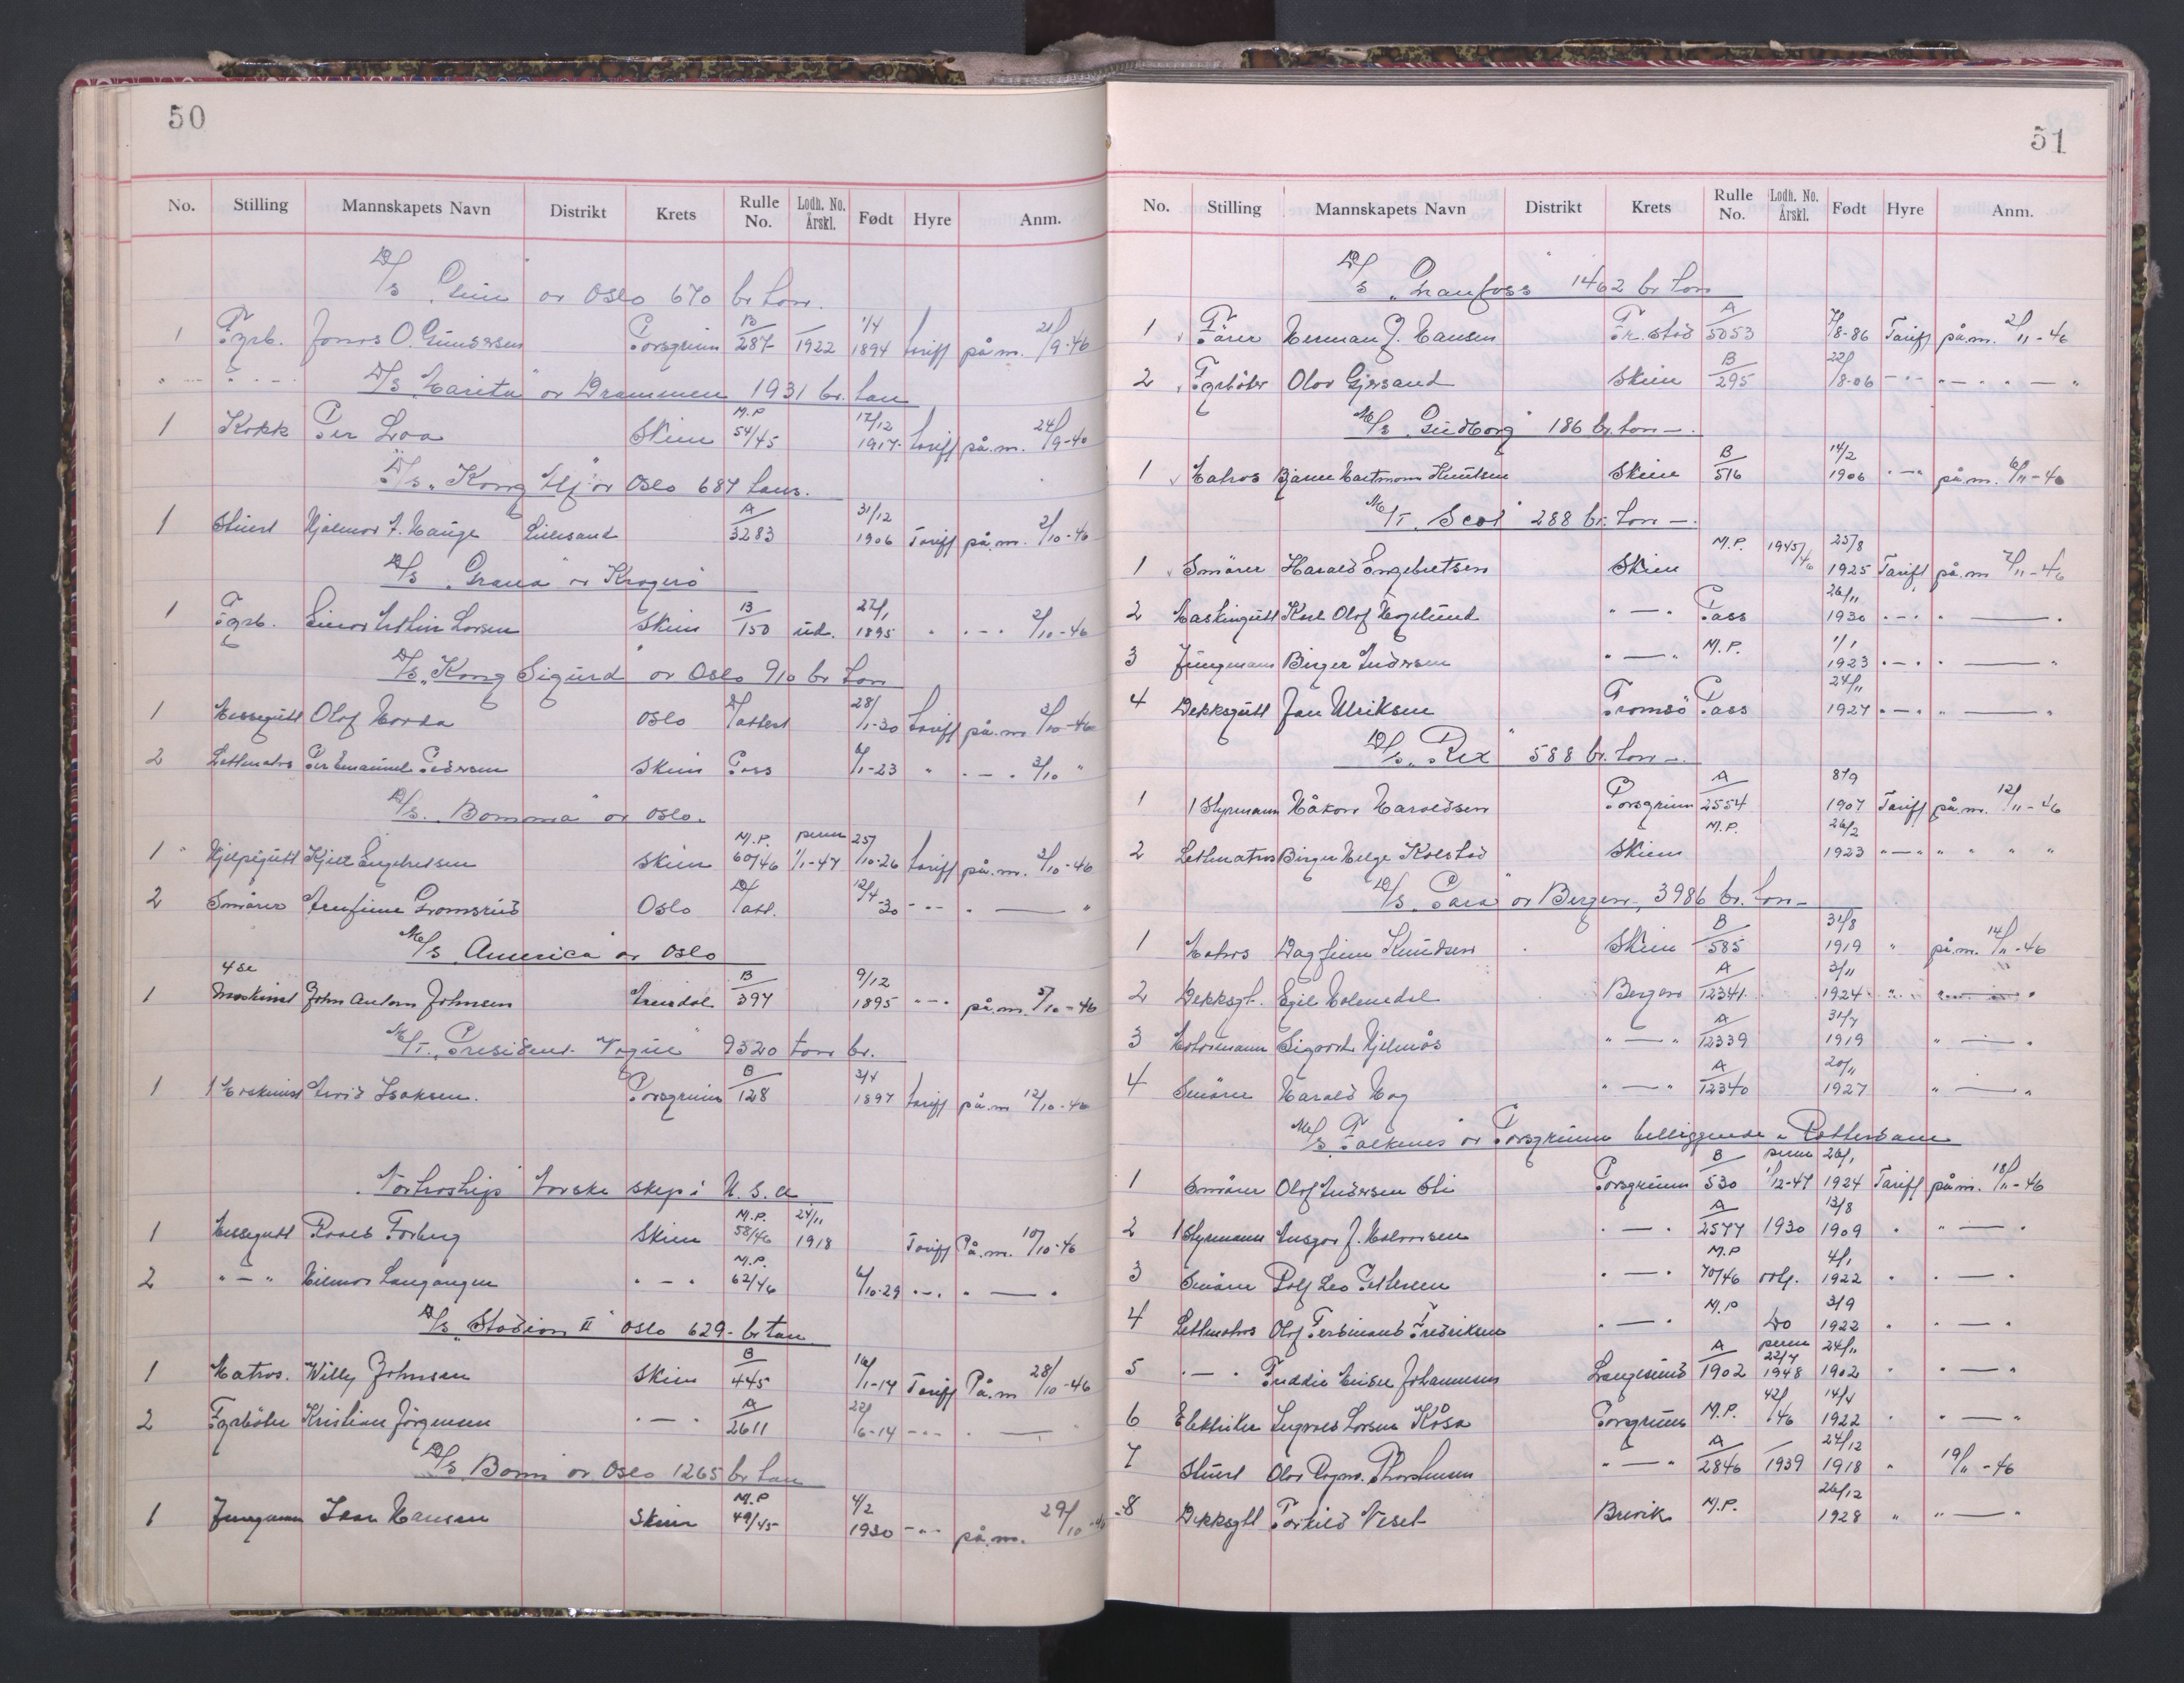 50
No. Stilling Mannskapets Navn Distrikt Krets Rulle No. Lodh. No. Årskl. Født Hyre Anm.
D/s av Oslo 670 br ton.
1 Fyrb. Jonas O. Gundersen Porsgrunn B/287 1922 1/4 1894 tariff på.m. 21/9-46
D/s "Marita" av Drammen 1931 br. ton
1 Kokk Per Skien M.P 54/45 17/12 1917 tariff på.m. 24/9-46
D/s "Kong Alf" av Oslo 687 tons.
1 Stuert Hjalmar A. Hauge Lillesand A/3283 31/12 1906 Tariff på.m. 2/10-46
D/s "Grana" av Kragerö
1 Fyrb. Einar Larsen Skien B/150 ud. 27/1 1895 " " - " 2/10-46
D/s "Kong Sigurd" av Oslo 910 br ton
1 Messegutt Olaf Oslo D/attest 28/1-30 tariff på.m. 3/10-46
2 Lettmatros Per Emanuel Pedersen Skien Pass 6/1-23 " " - " 3/10 "
D/s "Bomma" av Oslo.
1 Hjelpegutt Kjell Engebretsen Skien M.P. 60/46 perm 1/1-47 25/10-26 tariff på.m. 3/10-46
2 Smörer Arnfinn Gromsrud Oslo D/att. 12/4-30 " - " " — "
M/s "America" av Oslo
1 4de Maskinist John Anton Johnsen Arendal B/397 9/12 1895 " - " på.m. 5/10-46
M/T. "President 9320 ton br.
1 1 Maskinist Arvid Isaksen. Porsgrunn B/128 3/4 1897 tariff på.m 12/10-46
"Nortraship" Norske skip i U.S.A
1 Messegutt Skien M.P. 58/46 24/11 1918 Tariff På.m. 10/10-46
2 " - " Hilmar Langangen " - " M.P. 62/46 6/10-29 " - " " — "
D/s "Stadion II" Oslo 629 - br ton
1 Matros. Willy Johnsen Skien B/445 16/1-14 Tariff På.m 28/10-46
2 Fyrböter Kristian Jörgensen " - " A/2611 22/6-14 " - " " —
D/s "Bonn" av Oslo 1265 br ton
1 Jungmann Hansen Skien M.P 49/45 4/2 1930 " - " på.m. 29/10-46
51
No. Stilling Mannskapets Navn Distrikt Krets Rulle No. Lodh. No. Årskl. Født Hyre Anm.
D/s "Granfoss" 1462 br ton
1 Förer Herman J. Hansen Fr.stad A/5053 7/8-86 Tariff på.m. 2/11-46
2 Fyrböter Olav Gjersand Skien B/295 22/8-06 " - " " - " " — "
M/s "Gudborg" 186 br. ton —.
1 Matros Bjarne Hartmann Knutsen Skien B/516 14/2 1906 " - " på.m. 6/11-46
M/T. "Scot" 288 br. ton —.
1 Smörer Harald Engebretsen Skien M.P. 1945/46 25/8 1925 Tariff på.m 7/11-46
2 Maskingutt Karl Olaf Högelund " — " Pass 26/11 1930 " - " " — "
3 Jungmann Birger Andersen " — " M.P. 1/1 1923 " - " " — "
4 Dekksgutt Jan Ulriksen Tromsö Pass 24/11 1927 " - " " — "
D/s "Rex" 588 br. ton —.
1 1 Styrmann Håkon Haraldsen Porsgrunn A/2554 8/9 1907 Tariff på.m. 12/11-46
2 Lettmatros Birger Helge Kolstad Skien M.P. 26/2 1923 " - " " " "
D/s "Para" av Bergen, 3986 br. ton —
1 Matros Dagfinn Knudsen Skien B/585 31/8 1919 " på.m. 14/11-46
2 Dekksgt. Egil Holmedal Bergen A/12341 3/11 1924 " - " " — "
3 Motormann Sigvart Hjelmås " — " A/12339 31/7 1919 " — "
4 Smörer Harald Hog " — " A/12340 20/11 1927 " — "
M/s "Falkenes" av Porsgrunn beliggende i Rotterdam
1 Smörer Olaf Andersen Porsgrunn B/530 perm 1/12-47 26/1 1924 Tariff på.m. 18/11-46
2 1 Styrmann Ansgar J. Halvorsen " — " A/2577 1930 13/8 1909 " " — "
3 Smörer Rolf Leo Pettersen " — " M.P 70/46 4/1 1922 " " — "
4 Lettmatros Olaf Ferdinand Fredriksen " — " M.P Do 3/9 1922 " " — "
5 " — " Johannesen Langesund A/1902 perm 22/7 1948 24/11 1902 " " — "
6 Elektriker Ingvald Larsen Kåsa Porsgrunn M.P. 42/46 14/4 1922 " " — "
7 Stuert Olav Ragnv. Thorstensen " — " A/2846 1939 24/12 1918 " 19/11-46
8 Dekksgtt Torkild Neset Brevik M.P. 26/12 1928 " " — "